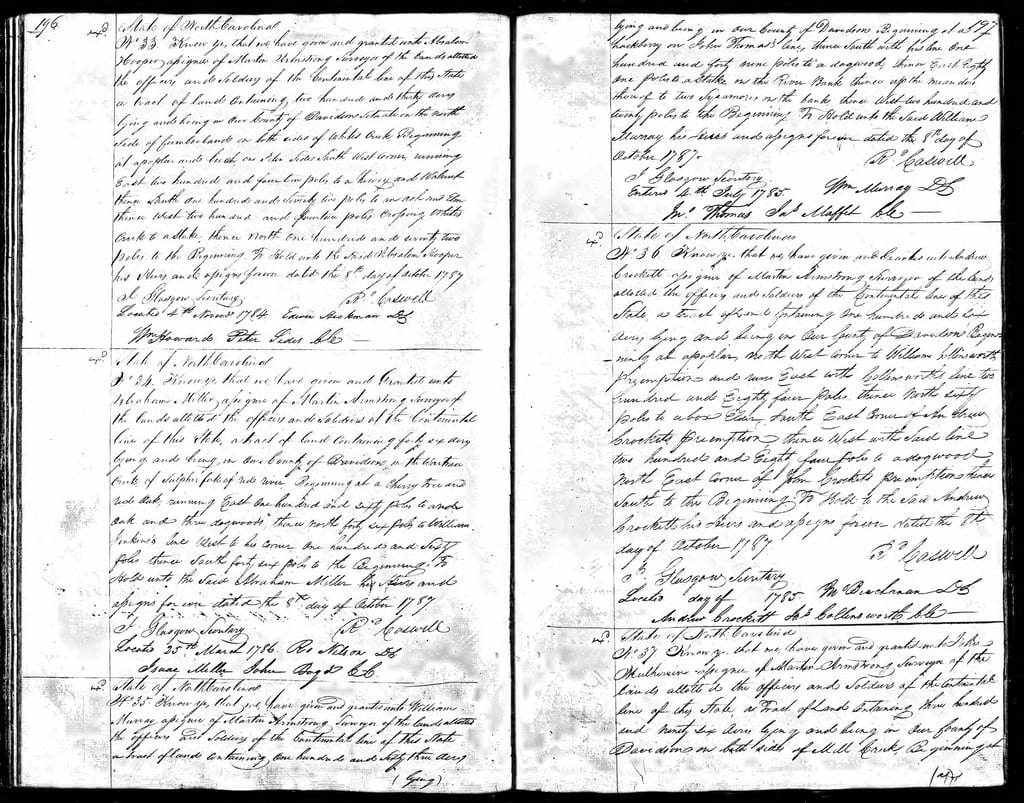 196
State of North Carolina
No 33. Know ye, that we have given and granted unto Absalom
Hooper assignee of Martin Armstrong Surveyor of the lands allotted
the officers and Soldiers of the Continental line of this State
a tract of land Containing two hundred and thirty Acres
lying and being in Our County of Davidson Situate on the north
side of Cumberland on both sides of Whites Creek Beginning
at a poplar and beech on Peter Sides North West corner, running
East two hundred and fourteen poles to a hicory and Walnut
thence South One hundred and Seventy two poles to an ash and Elm
thence West two hundred and fourteen poles Crossing Whites
Creek to a Stake thence North One hundred and seventy two
poles to the Beginning. To Hold unto the Said Absalom Hooper
his Heirs and assigns forever dated the 8th day of October 1787
J Glasgow Secretary Rd Caswell
Located 4th Novemr 1784 Edwin Hickman DS
Wm Howard Peter Sides CC
State of North Carolina
No 34. Know ye, that we have given and Granted unto
Abraham Miller assignee of Martin Armstrong Surveyor of
the lands allotted the officers and Soldiers of the Continental
line of this State, a tract of land Containing forty six Acres
lying and being in Our County of Davidson, on the
Creek of Sulpher fork of red river Beginning at a Cherry tree and
red Oak, running East One hundred and sixty poles to a red
oak and three dogwoods, thence north forty six poles to William
Jenkins's line West to his corner One hundred and Sixty
poles thence South forty six poles to the Beginning. To
Hold unto the Said Abraham Miller his Heirs and
assigns for ever dated the 8th day of October 1787
J Glasgow Secretary Rd Caswell
Located 25th March 1786 Ro Nelson DS
Isaac Miller John Boyd CC
State of North Carolina
No 35 Know ye, that we have given and granted unto William
Murray assignee of Martin Armstrong Surveyor of the lands allotted
the officers and Soldiers of the Continental line of this State
a tract of land Containing One hundred and Sixty three Acres
(lying)
197
lying and being in our County of Davidson Beginning at a
hackberry on John Thomas's line, thence South with his line One
hundred and forty nine poles to a dogwood, thence East Eighty
one poles to a Stake on the River Bank thence up the meanders
thereof to two Sycamores on the bank thence West two hundred and
twenty poles to the Beginning To Hold unto the Said William
Murray his Heirs and assigns forever dated the 8th day of
October 1787.
Rd Caswell
J Glasgow Secretary
Entered 4th July 1785 Wm Murray DS
Jno Thomas Jas Maffet CC
State of North Carolina
No 36. Know ye that we have given and Granted unto Andrew
Crockett assignee of Martin Armstrong Surveyor of the lands
allotted the officers and Soldiers of the Continental line of this
State, a tract of land Containing One hundred and six
Acres lying and being in Our County of Davidson Begin-
ning at a poplar, North West corner to William Collinsworth
Preemption and runs East with Collinsworths line two
hundred and Eighty four Poles, thence North sixty
poles to a box Elder, South East Corner of Andrew
Crocketts Preemption, thence West with Said line
two hundred and Eighty four poles to a dogwood
North East corner of John Crocketts Preemption thence
South to the Beginning To Hold to the Said Andrew
Crockett his Heirs and assigns forever dated the 8th
day of October 1787
Rd Caswell
J Glasgow Secretary
Located day of 1785 M Buchanan DS
Andrew Crockett Collinsworth CC
State of North Carolina
No 37 Know ye that we have given and granted unto
assignee of Martin Armstrong Surveyor of the
lands allotted the officers and Soldiers of the Continental
line of this State a Tract of Land Containing three hundred
and ninety six Acres lying and being in our County of
Davidson on both sides of Mill Creek Beginning at
(at)